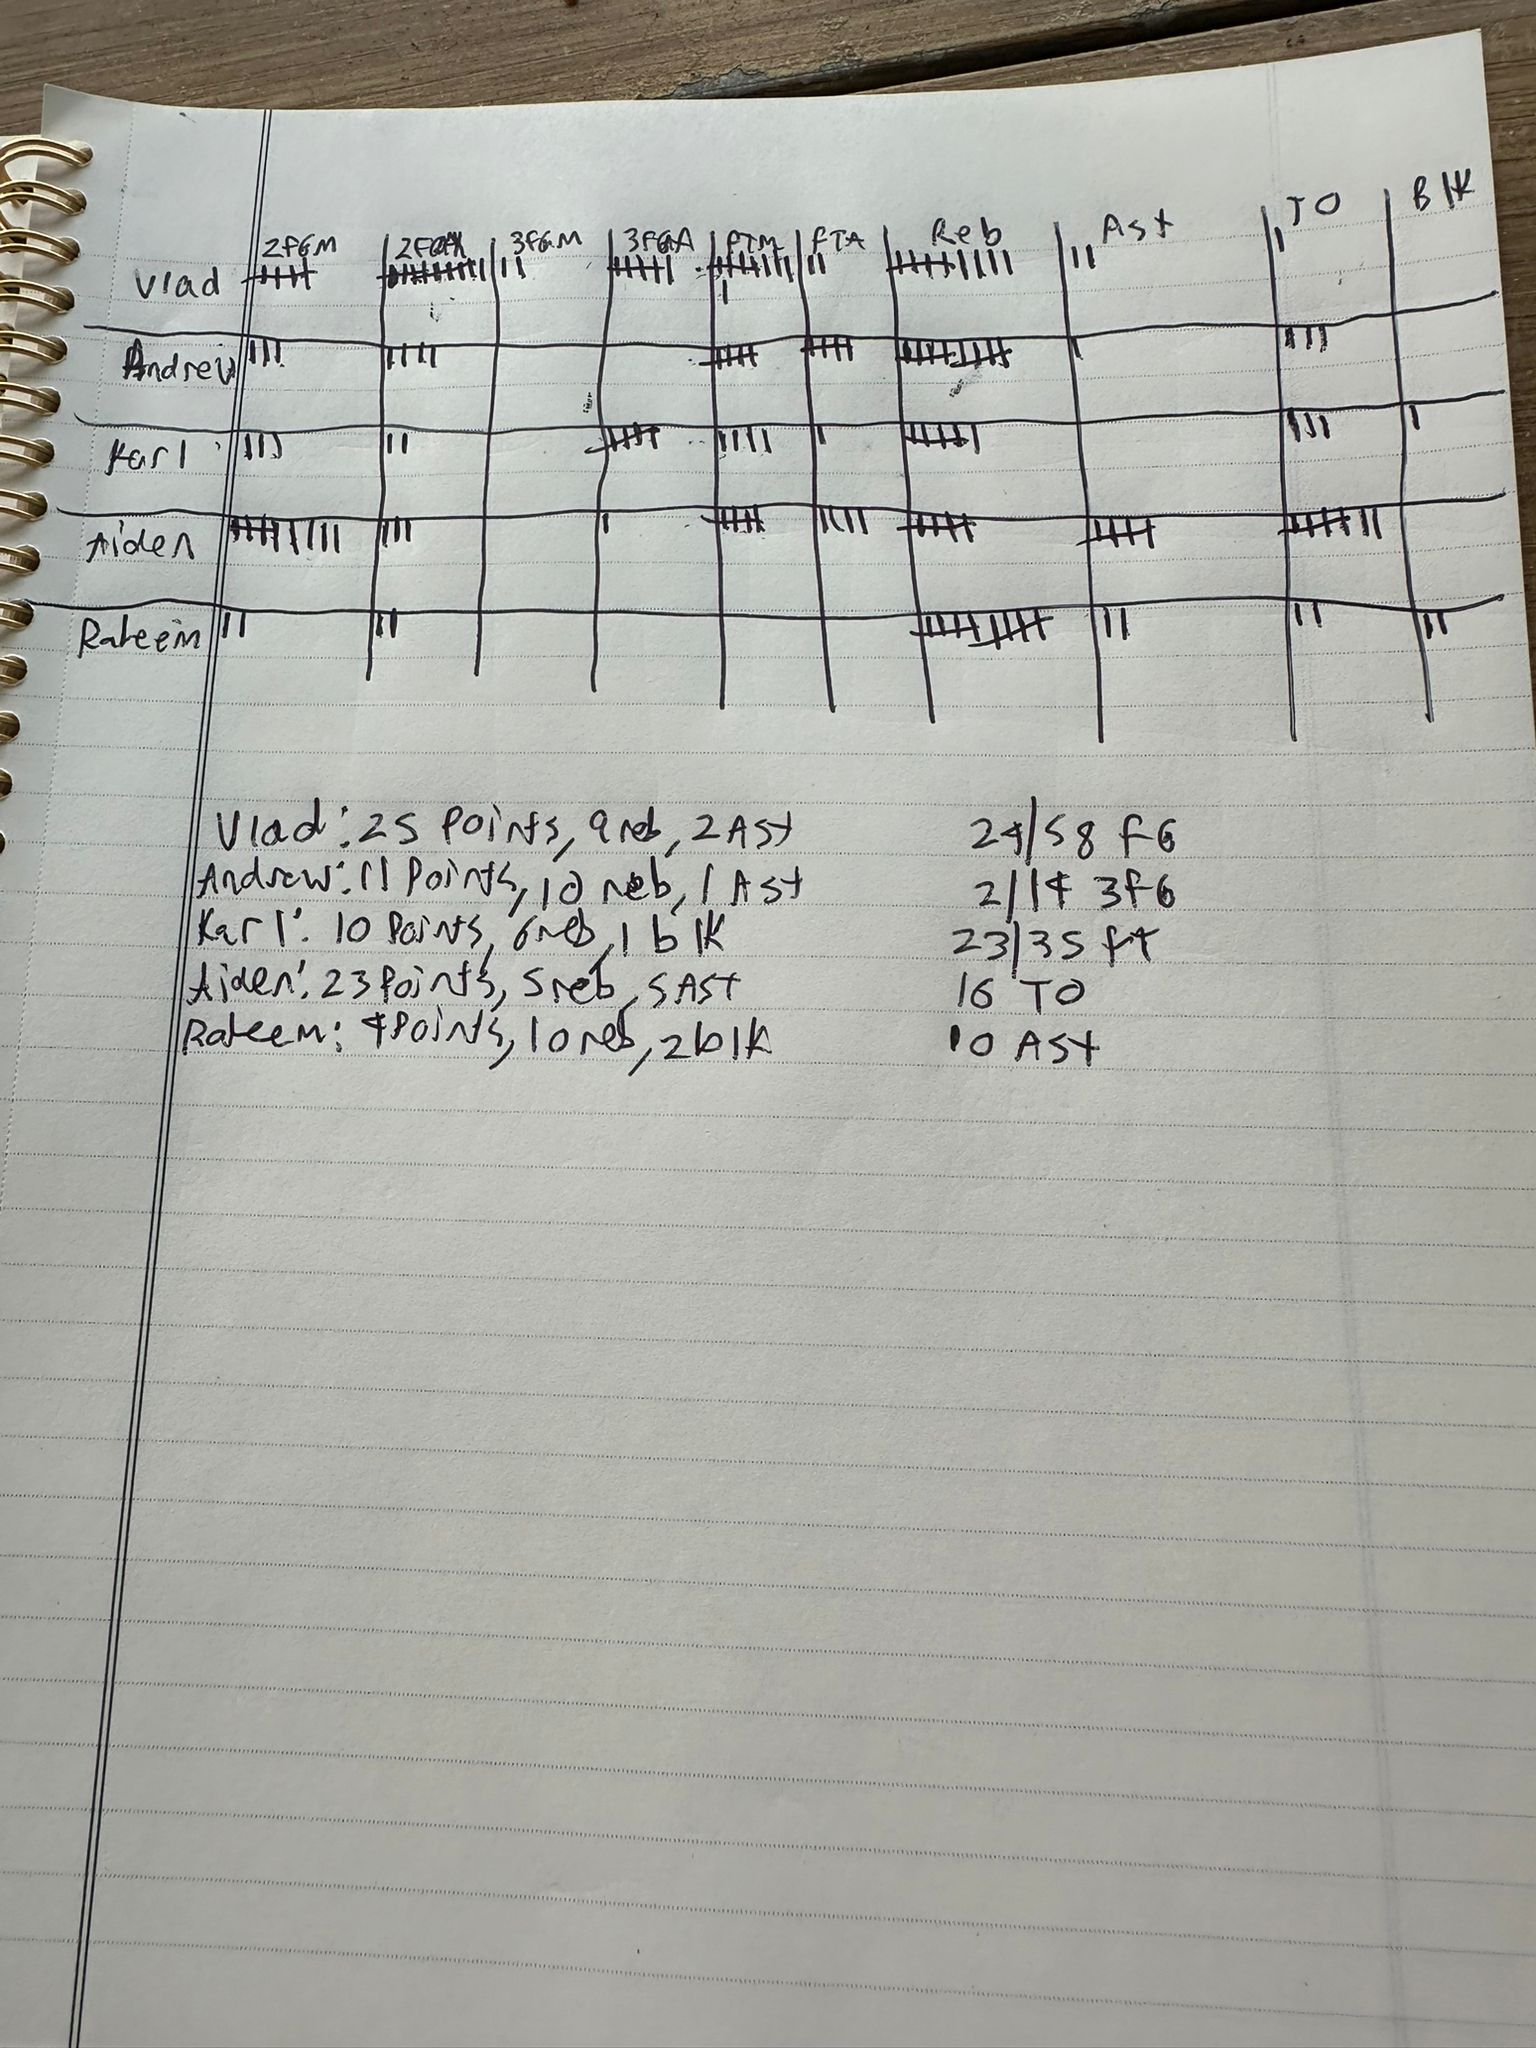 2FGM 2FGA 3FGM 3FGA FTM FTA Reb Ast TO Blk
Vlad
Andrew
Karl
Aiden
Raheem
Vlad: 25 Points, 9reb, 2 Ast 24/58 FG
Andrew: 11 Points, 10 reb, 1 Ast 2/14 3FG
Karl: 10 Points, 6reb, 1 blk 23/35 ft
Aiden: 23 Points, 5reb, 5 Ast 16 TO
Raheem: 4 Points, 10 reb, 2 blk 10 Ast